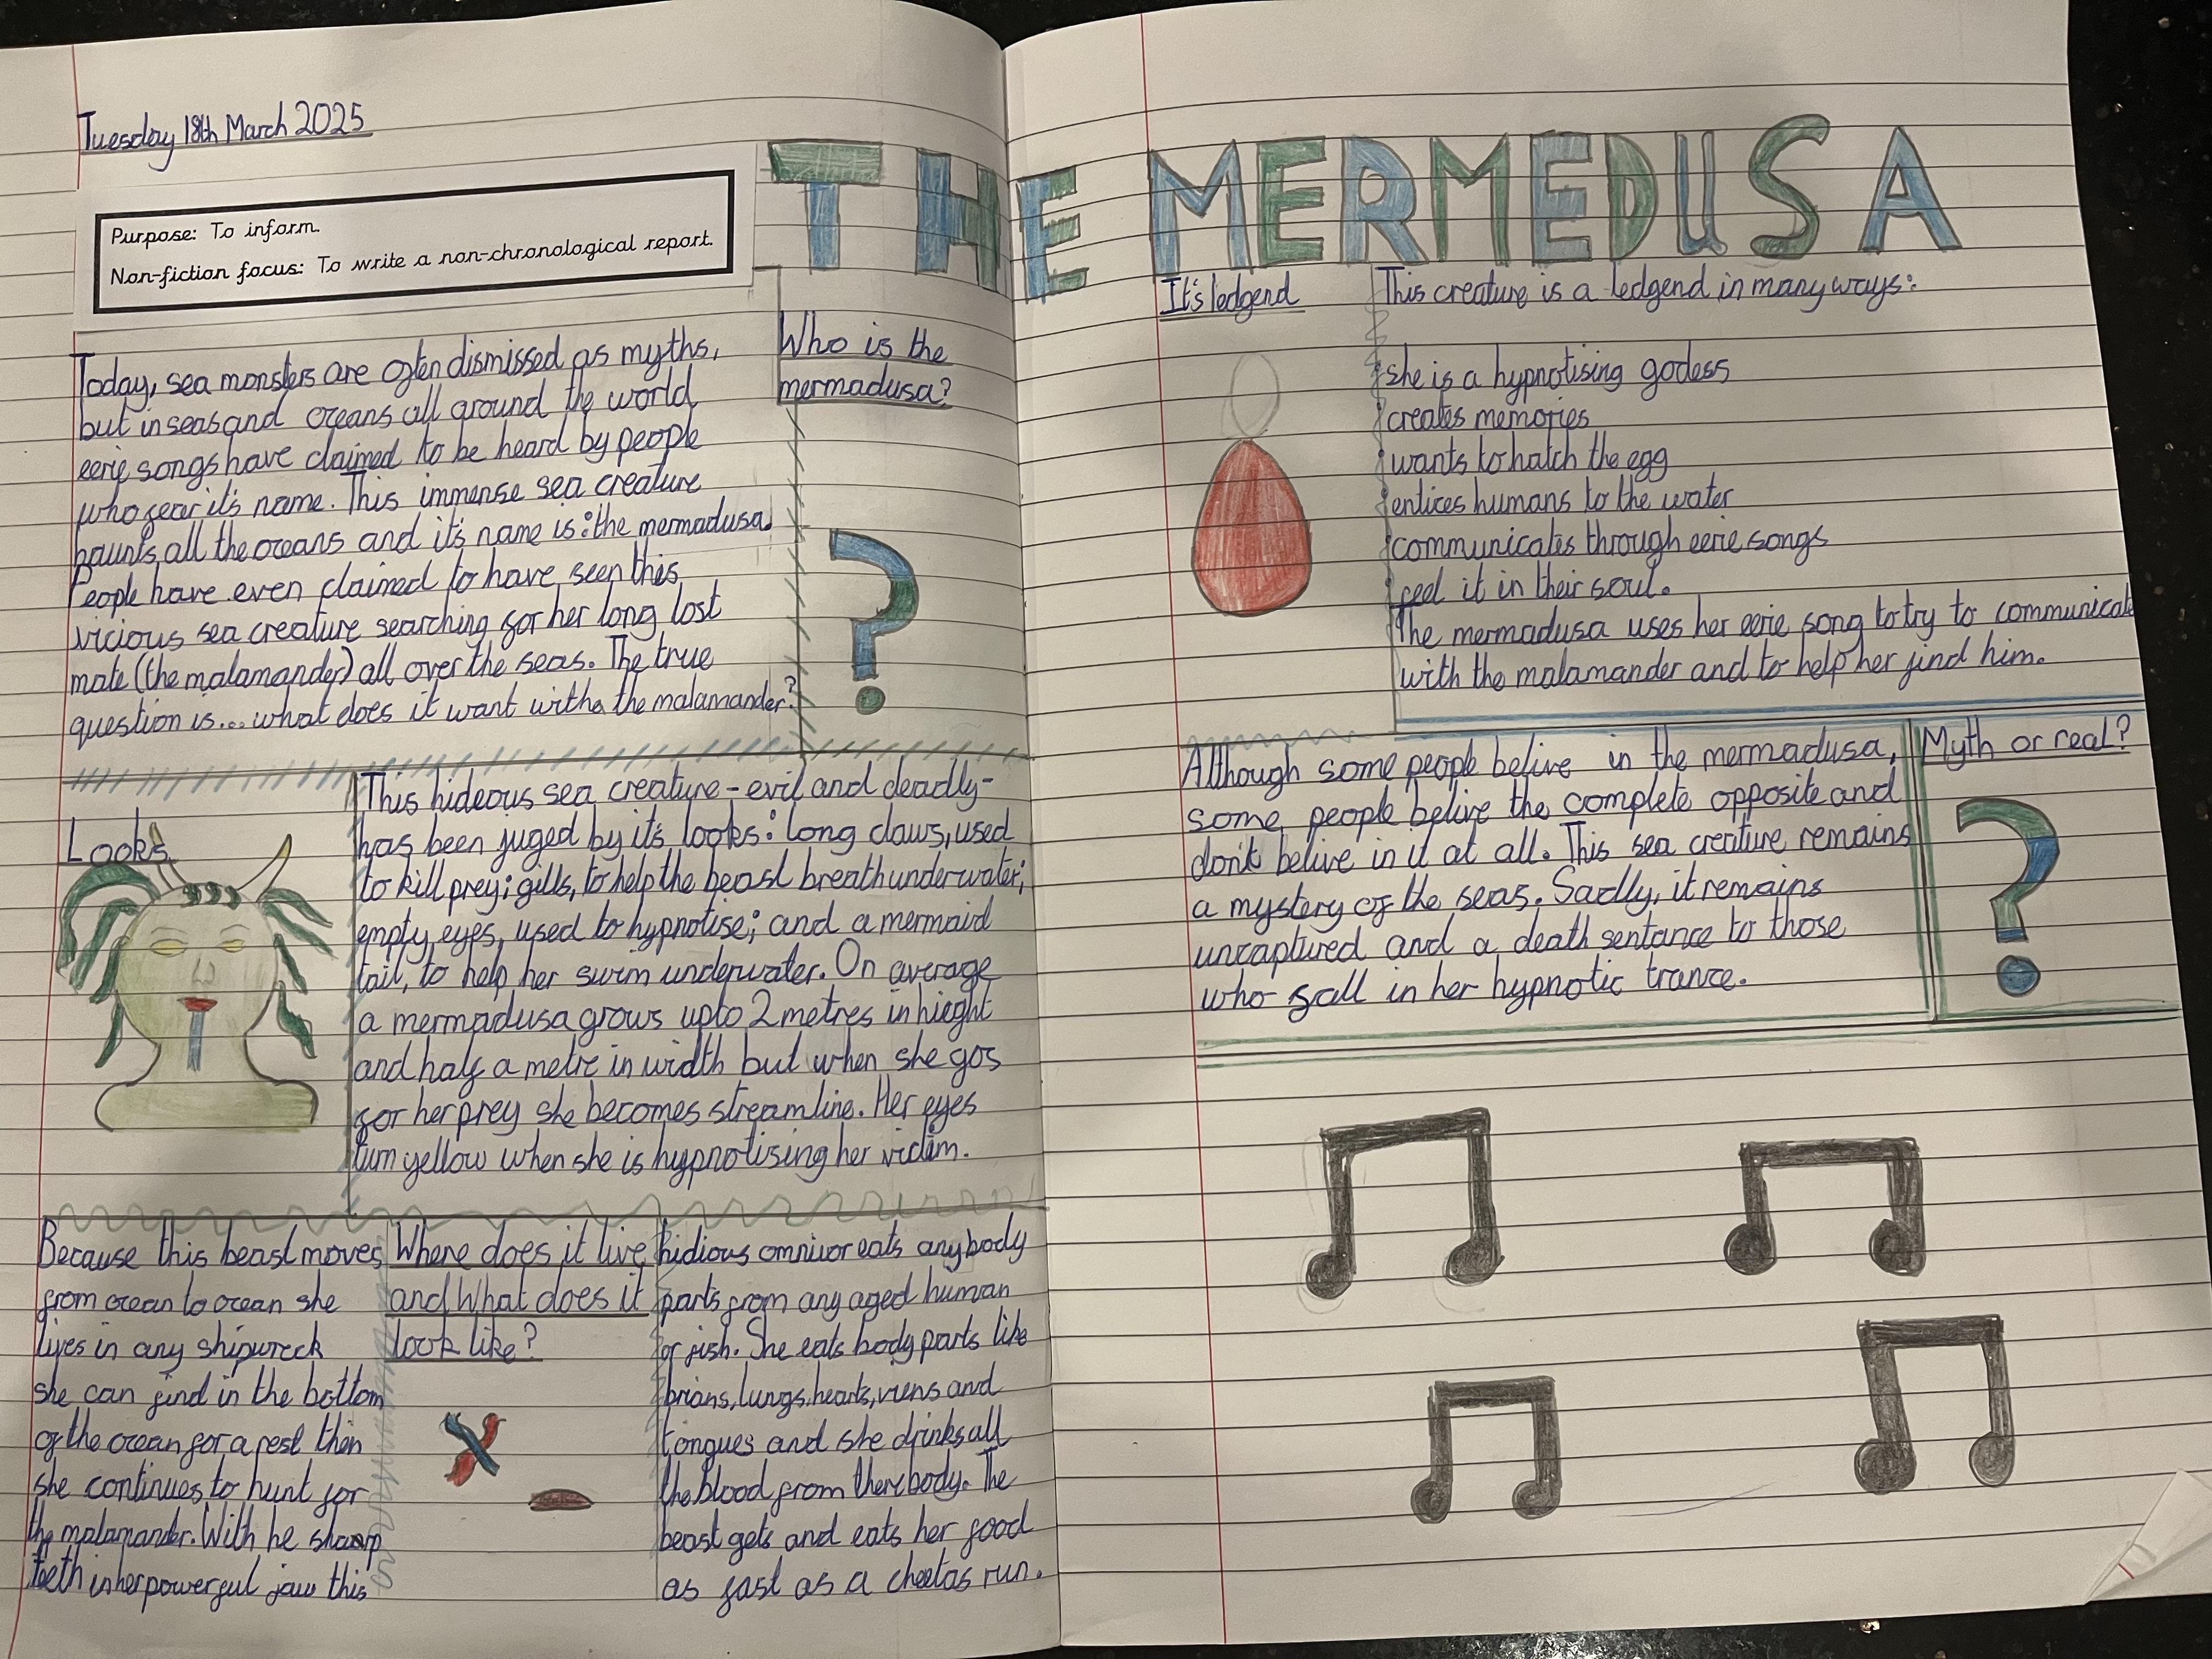 Tuesday 18th March 2025
Purpose: To inform.
Non-fiction focus: To write a non-chronological report.
THE MERMEDUSA
Who is the
mermadusa?
Today, sea monsters are often dismissed as myths,
but in seas and oceans all around the world
eerie songs have claimed to be heard by people
who fear it's name. This immense sea creature
haunts all the oceans and it's name is: the mermadusa.
People have even claimed to have seen this
vicious sea creature searching for her long lost
mate (the malamander) all over the seas. The true
question is... what does it want with the malamander?
Looks
This hideous sea creature - evil and deadly-
has been juged by it's looks: long claws, used
to kill prey; gills, to help the beast breath underwater;
empty eyes, used to hypnotise; and a mermaid
tail, to help her swim underwater. On average
a mermadusa grows upto 2 metres in hieght
and half a metre in width but when she gos
for her prey she becomes streamline. Her eyes
turn yellow when she is hypnotising her victim.
Where does it live
and What does it
look like?
Because this beast moves
from ocean to ocean she
lives in any shipwreck
she can find in the bottom
of the ocean for a rest then
she continues to hunt for
the malamander. With he sharp
teeth in her powerful jaw this
hidious omnivor eats any body
parts from any aged human
or fish. She eats body parts like
brians, lungs, hearts, viens and
tongues and she drinks all
the blood from there body. The
beast gets and eats her food
as fast as a cheetas run.
It's ledgend
This creature is a ledgend in many ways:
she is a hypnotising godess
creates memories
wants to hatch the egg
entices humans to the water
communicates through eerie songs
feel it in their soul.
The mermadusa uses her eerie song to try to communicate
with the malamander and to help her find him.
Myth or real?
Although some people belive in the mermadusa,
some people belive the complete opposite and
don't belive in it at all. This sea creature remains
a mystery of the seas. Sadly, it remains
uncaptured and a death sentance to those
who fall in her hypnotic trance.